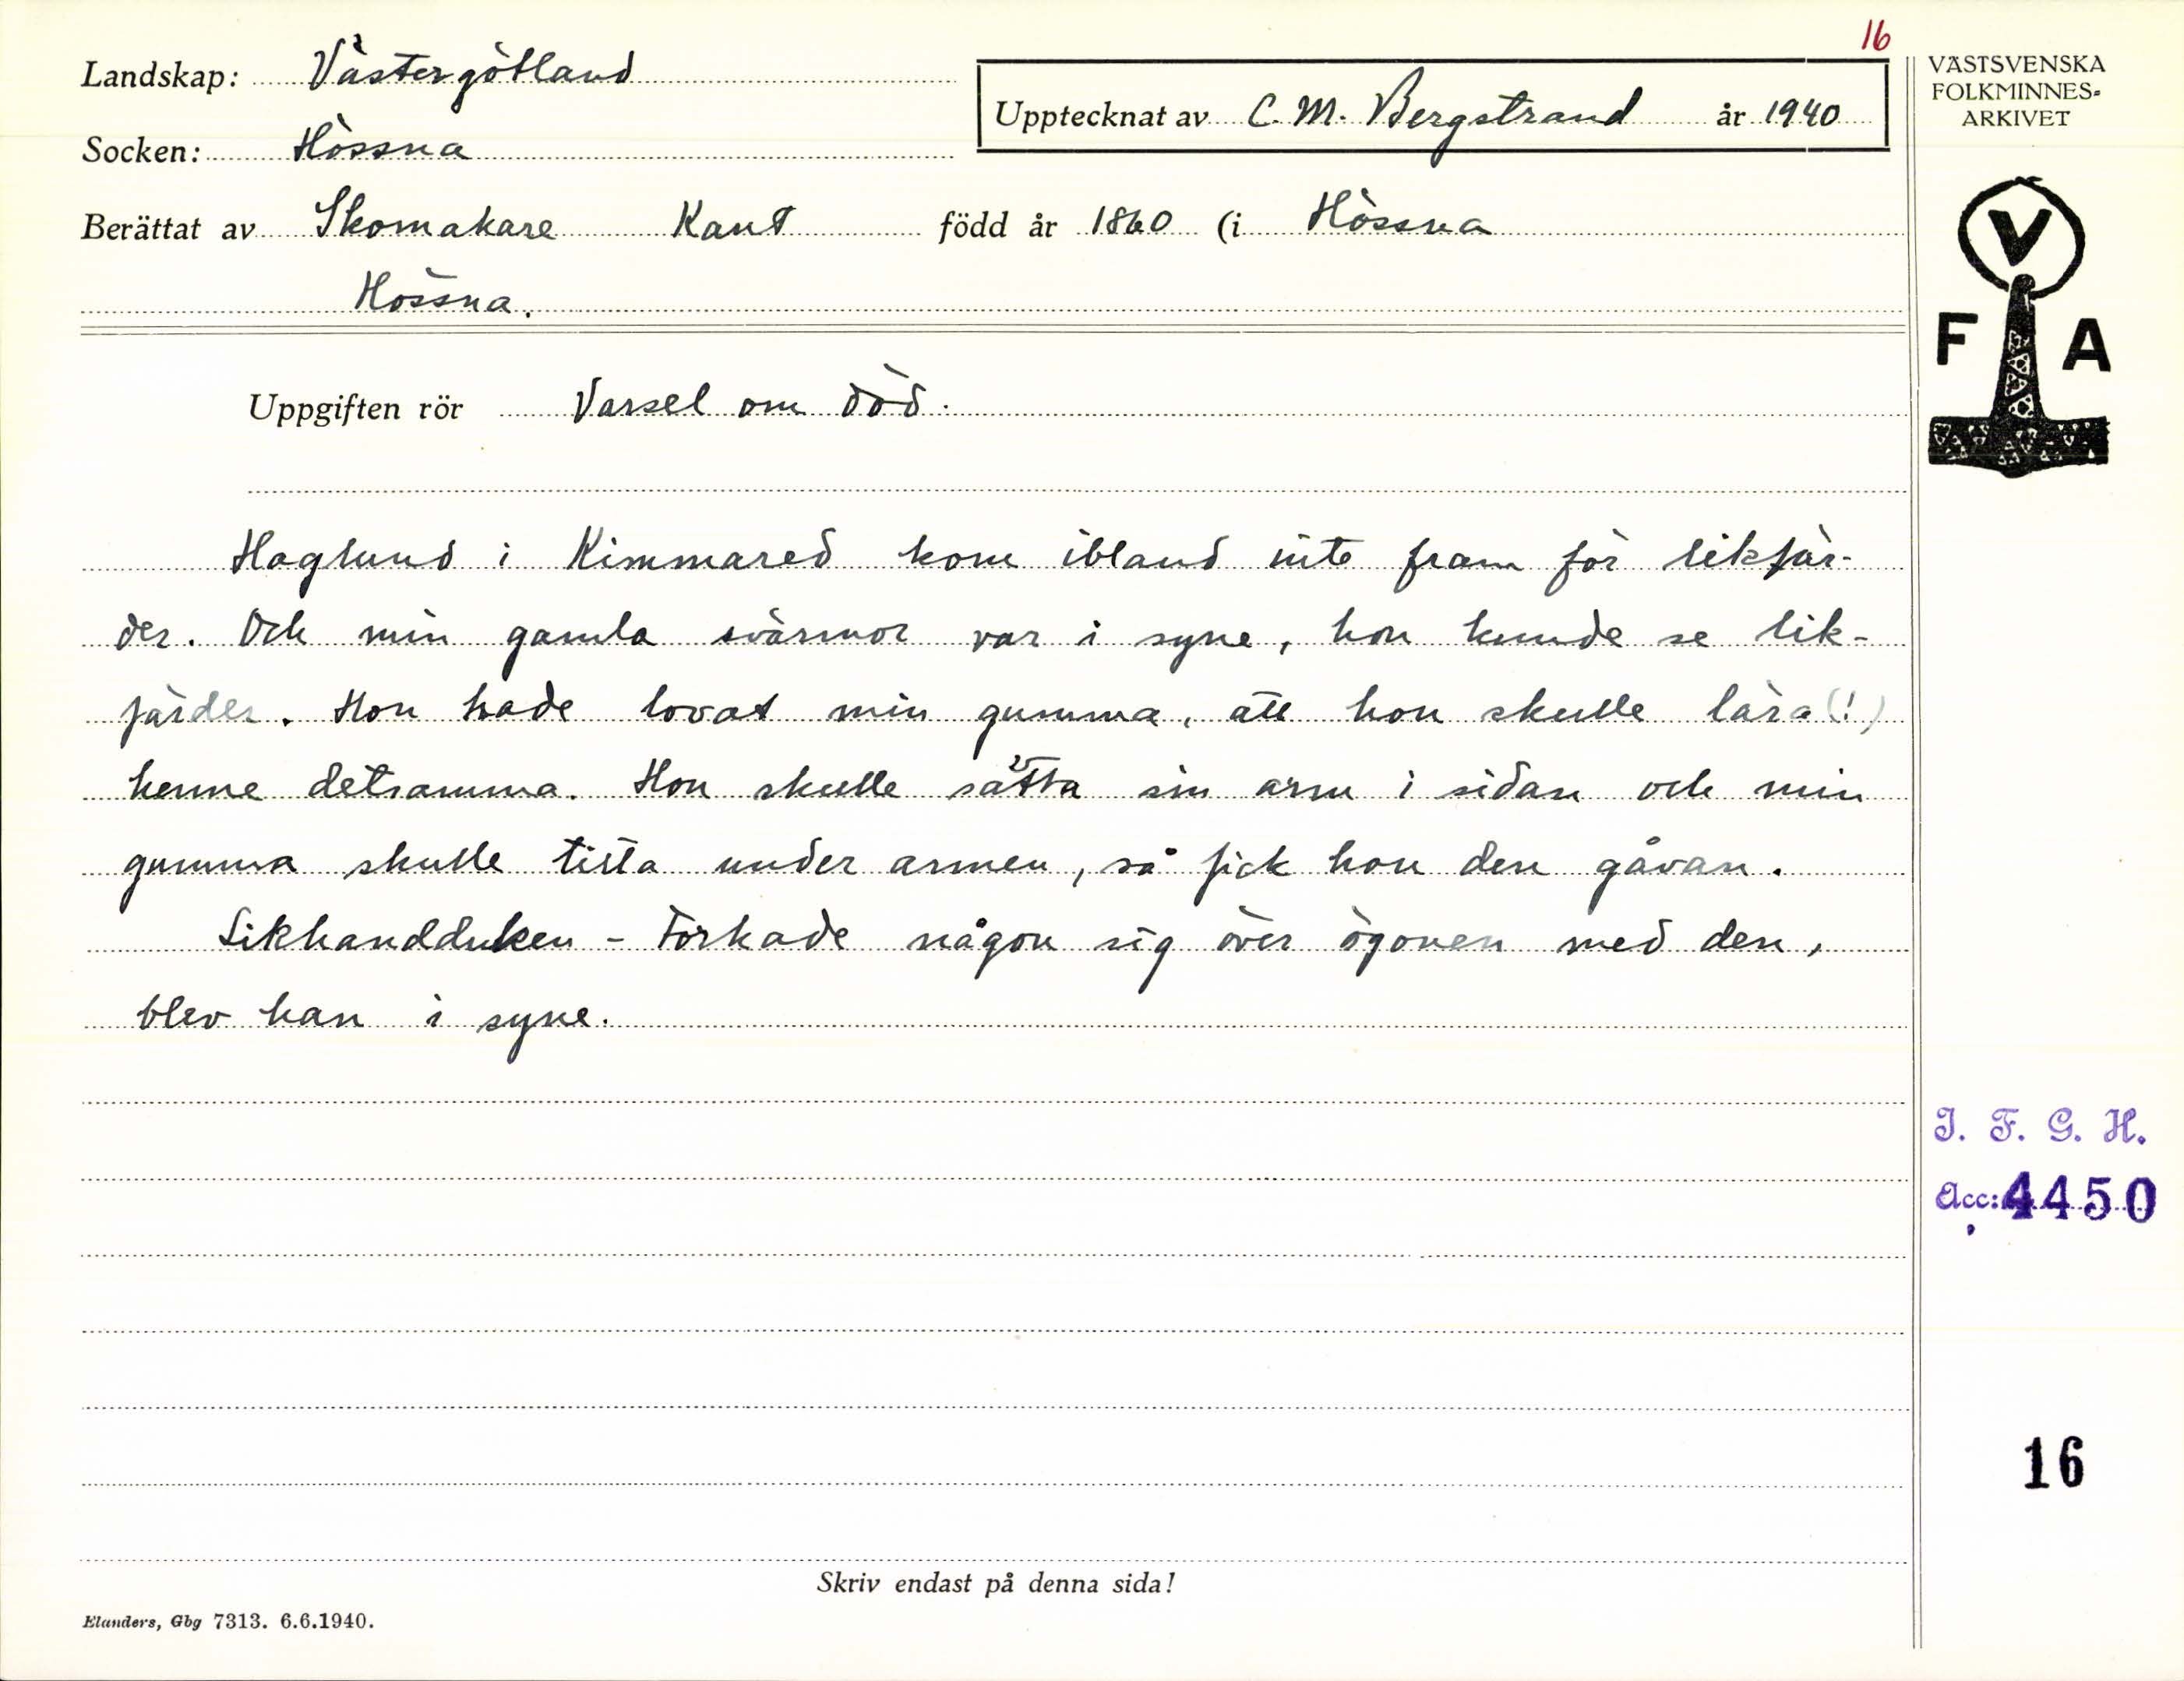 16
Landskap: Västergötland
Socken: Hössna
Upptecknat av C. M. Bergstrand år 1940
Berättat av Skomakare Kant född år 1860 (i Hössna
Hössna.
Uppgiften rör Varsel om död.
Haglund i Kimmared kom ibland inte fram för likfär-
der. Och min gamla svärmor var i syne, hon kunde se lik-
färder. Hon hade lovat min gumma, att hon skulle lära (!)
henne detsamma. Hon skulle sätta sin arm i sidan och min
gumma skulle titta under armen, så fick hon den gåvan.
Likhandduken - torkade någon sig över ögonen med den,
blev han i syne.
Skriv endast på denna sida!
Elanders, Gbg 7313. 6.6.1940.
VÄSTSVENSKA
FOLKMINNES-
ARKIVET
V
F A
I. F. G. H.
Acc: 4450
16